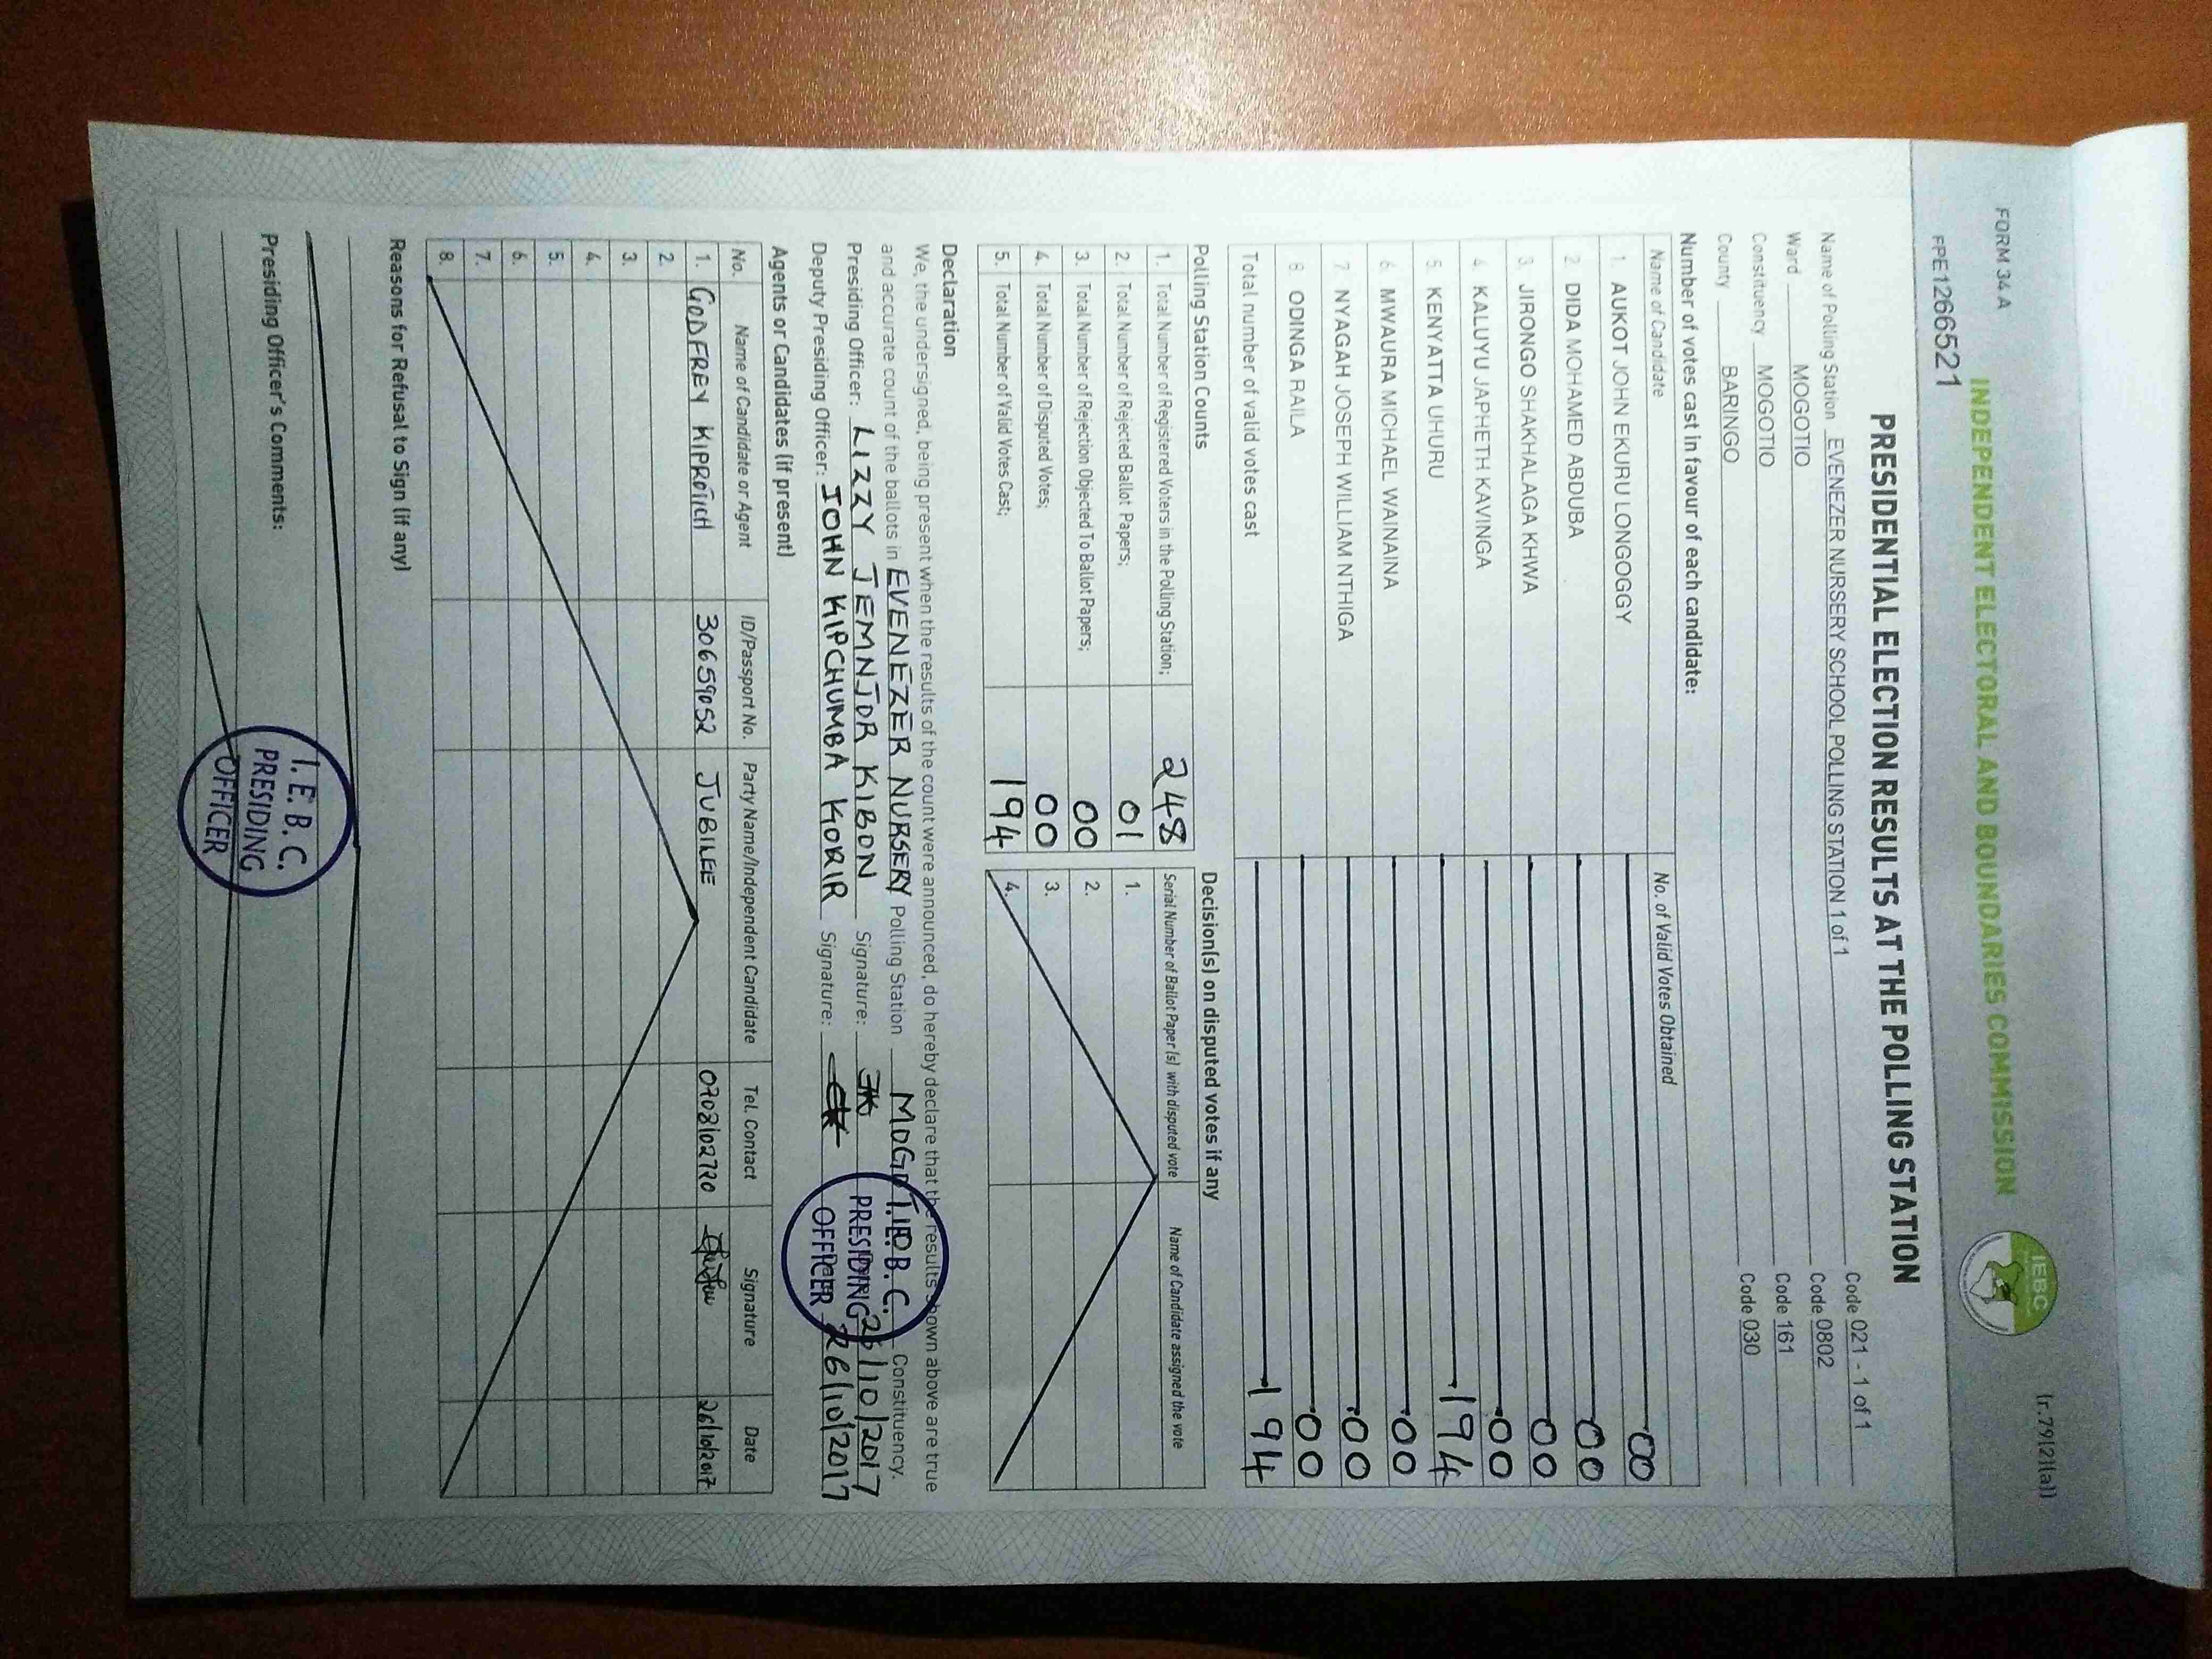 FORM 34 A
(r.79(2)(a))
INDEPENDENT ELECTORAL AND BOUNDARIES COMMISSION
IEBC
FPE1266521
PRESIDENTIAL ELECTION RESULTS AT THE POLLING STATION
Name of Polling Station EVENEZER NURSERY SCHOOL POLLING STATION 1 of 1 Code 021 - 1 of 1
Ward MOGOTIO Code 0802
Constituency MOGOTIO Code 161
County BARINGO Code 030
Number of votes cast in favour of each candidate:
Name of Candidate No. of Valid Votes Obtained
1. AUKOT JOHN EKURU LONGOGGY 00
2. DIDA MOHAMED ABDUBA 00
3. JIRONGO SHAKHALAGA KHWA 00
4. KALUYU JAPHETH KAVINGA 00
5. KENYATTA UHURU 194
6. MWAURA MICHAEL WAINAINA 00
7. NYAGAH JOSEPH WILLIAM NTHIGA 00
8. ODINGA RAILA 00
Total number of valid votes cast 194
Polling Station Counts
1. Total Number of Registered Voters in the Polling Station; 248
2. Total Number of Rejected Ballot Papers; 01
3. Total Number of Rejection Objected To Ballot Papers; 00
4. Total Number of Disputed Votes; 00
5. Total Number of Valid Votes Cast; 194
Decision(s) on disputed votes if any
Serial Number of Ballot Paper (s) with disputed vote Name of Candidate assigned the vote
1.
2.
3.
4.
Declaration
We, the undersigned, being present when the results of the count were announced, do hereby declare that the results shown above are true
and accurate count of the ballots in EVENEZER NURSERY Polling Station MOGOTIO Constituency.
Presiding Officer: LIZZY JEMNJOR KIBON Signature: 26/10/2017
Deputy Presiding Officer: JOHN KIPCHUMBA KORIR Signature: 26/10/2017
I.E.B.C.
PRESIDING
OFFICER
Agents or Candidates (if present)
No. Name of Candidate or Agent ID/Passport No. Party Name/Independent Candidate Tel. Contact Signature Date
1. GODFREY KIPROTICH 30659052 JUBILEE 0708102720 26/10/2017
2.
3.
4.
5.
6.
7.
8.
Reasons for Refusal to Sign (if any)
Presiding Officer's Comments:
I.E.B.C.
PRESIDING
OFFICER